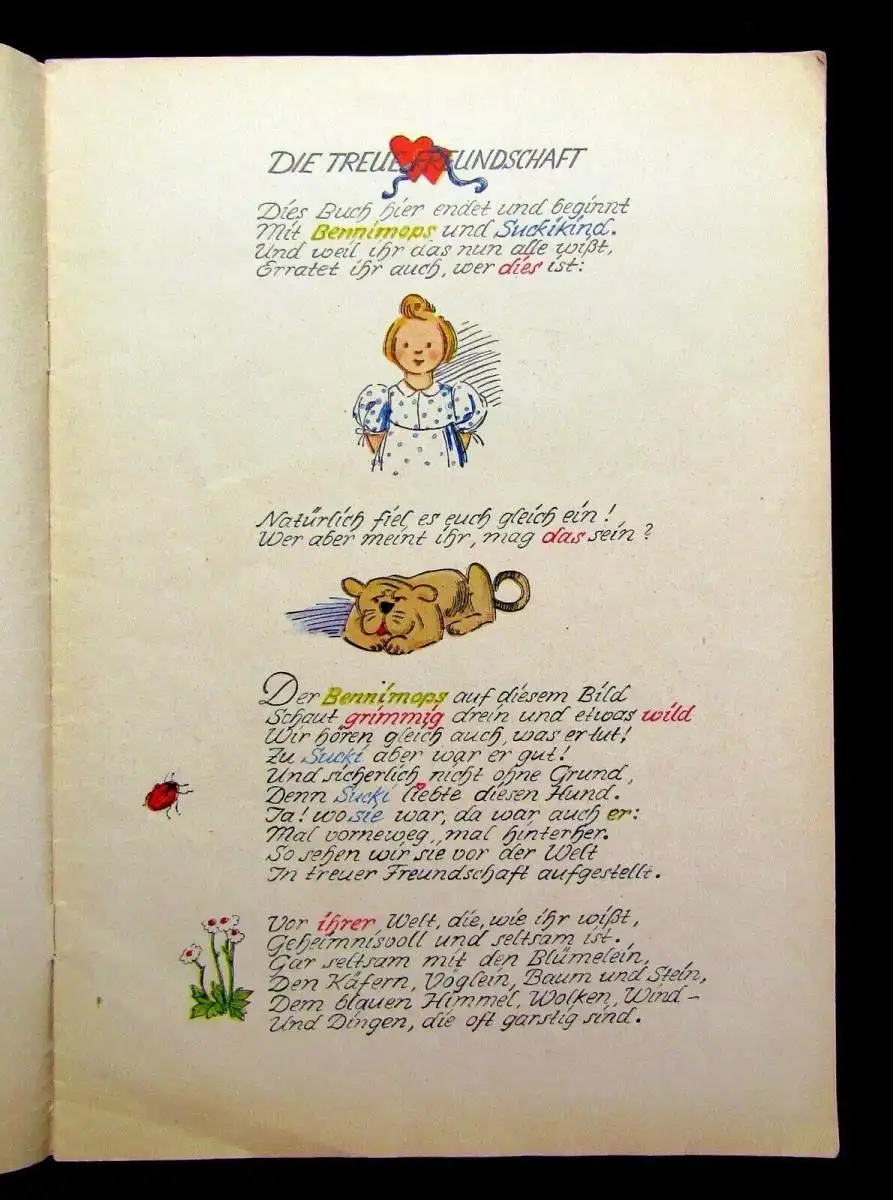 DIE TREUE FREUNDSCHAFT
Dies Buch hier endet und beginnt
Mit Bennimops und Suckikind.
Und weil ihr das nun alle wißt,
Erratet ihr auch, wer dies ist:
Natürlich fiel es euch gleich ein!
Wer aber meint ihr, mag das sein?
Der Bennimops auf diesem Bild
Schaut grimmig drein und etwas wild
Wir hören gleich auch, was er tut!
Zu Sucki aber war er gut!
Und sicherlich nicht ohne Grund,
Denn Sucki liebte diesen Hund.
Ja! wo sie war, da war auch er:
Mal vorneweg, mal hinterher.
So sehen wir sie vor der Welt
In treuer Freundschaft aufgestellt.
Vor ihrer Welt, die, wie ihr wißt,
Geheimnisvoll und seltsam ist.
Gar seltsam mit den Blümelein,
Den Käfern, Vöglein, Baum und Stein,
Dem blauen Himmel, Wolken, Wind –
Und Dingen, die oft garstig sind.